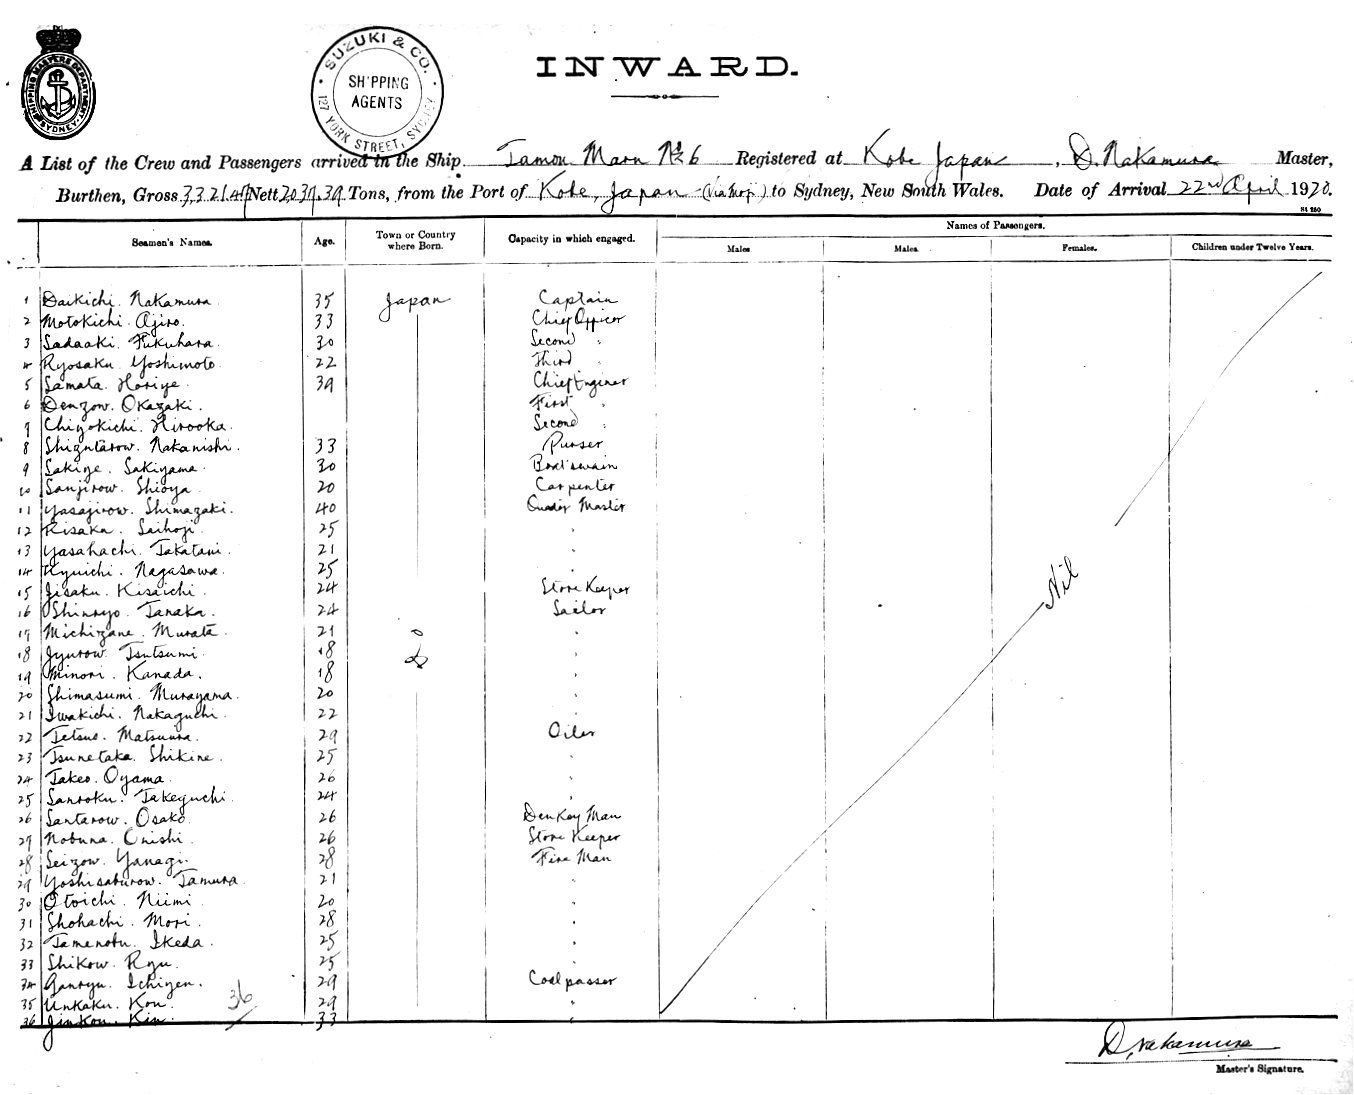 SHIPPING MASTERS DEPARTMENT
SYDNEY
SUZUKI & CO.
SHIPPING
AGENTS
127 YORK STREET, SYDNEY
INWARD.
A List of the Crew and Passengers arrived in the Ship. Tamon Maru No 6 Registered at Kobe Japan, D. Nakamura Master,
Burthen, Gross 3321.49 Nett 2039.39 Tons, from the Port of Kobe, Japan (via Moji) to Sydney, New South Wales. Date of Arrival 22nd April 1920.
St 250
Seamen's Names. Age. Town or Country where Born. Capacity in which engaged. Names of Passengers.
Males. Males. Females. Children under Twelve Years.
1 Daikichi. Nakamura. 35 Japan Captain
2 Motokichi. Ajiro. 33 Chief Officer
3 Sadaaki. Fukuhara. 30 Second "
4 Ryosaku. Yoshimoto. 22 Third "
5 Samata. Horiye. 39 Chief Enginer
6 Denzow. Okazaki. First "
7 Chiyokichi. Hirooka. Second "
8 Shigutarow. Nakanishi. 33 Purser
9 Sakiye. Sakiyama. 30 Boat'swain
10 Sanjirow. Shioya. 20 Carpenter
11 Yasajirow. Shimazaki. 40 Quader Master
12 Risaku. Saihoji. 25 "
13 Yasahachi. Takatani. 21 "
14 Kyuichi. Nagasawa. 25 "
15 Jisaku. Kisaichi. 24 Store Keeper
16 Shinryo. Tanaka. 24 Sailor
17 Michizane. Murata. 21 "
18 Jyurow. Tsutsumi. 18 "
19 Minori. Kanada. 18 "
20 Shimasumi. Murayama. 20 "
21 Iwakichi. Nakaguchi. 22 "
22 Tetsuo. Matsuura. 29 Oiler
23 Tsunetaka. Shikine. 25 "
24 Takeo. Oyama. 26 "
25 Sanroku. Takeguchi. 24 "
26 Santarow. Osako. 26 Denkey Man
27 Nobuna. Onishi. 26 Store Keeper
28 Seizow. Yanagi. 28 Fire Man
29 Yoshisaburow. Tamura. 21 "
30 Otoichi. Niimi. 20 "
31 Shohachi. Mori. 28 "
32 Tamenobu. Ikeda. 25 "
33 Shikow. Ryu. 25 "
34 Ganryu. Ichiyen. 29 Coalpasser
35 Unkaku. Kou. 29 "
36 Jinkou. Kin. 33 "
Do
Nil
36
D. Nakamura
Master's Signature.